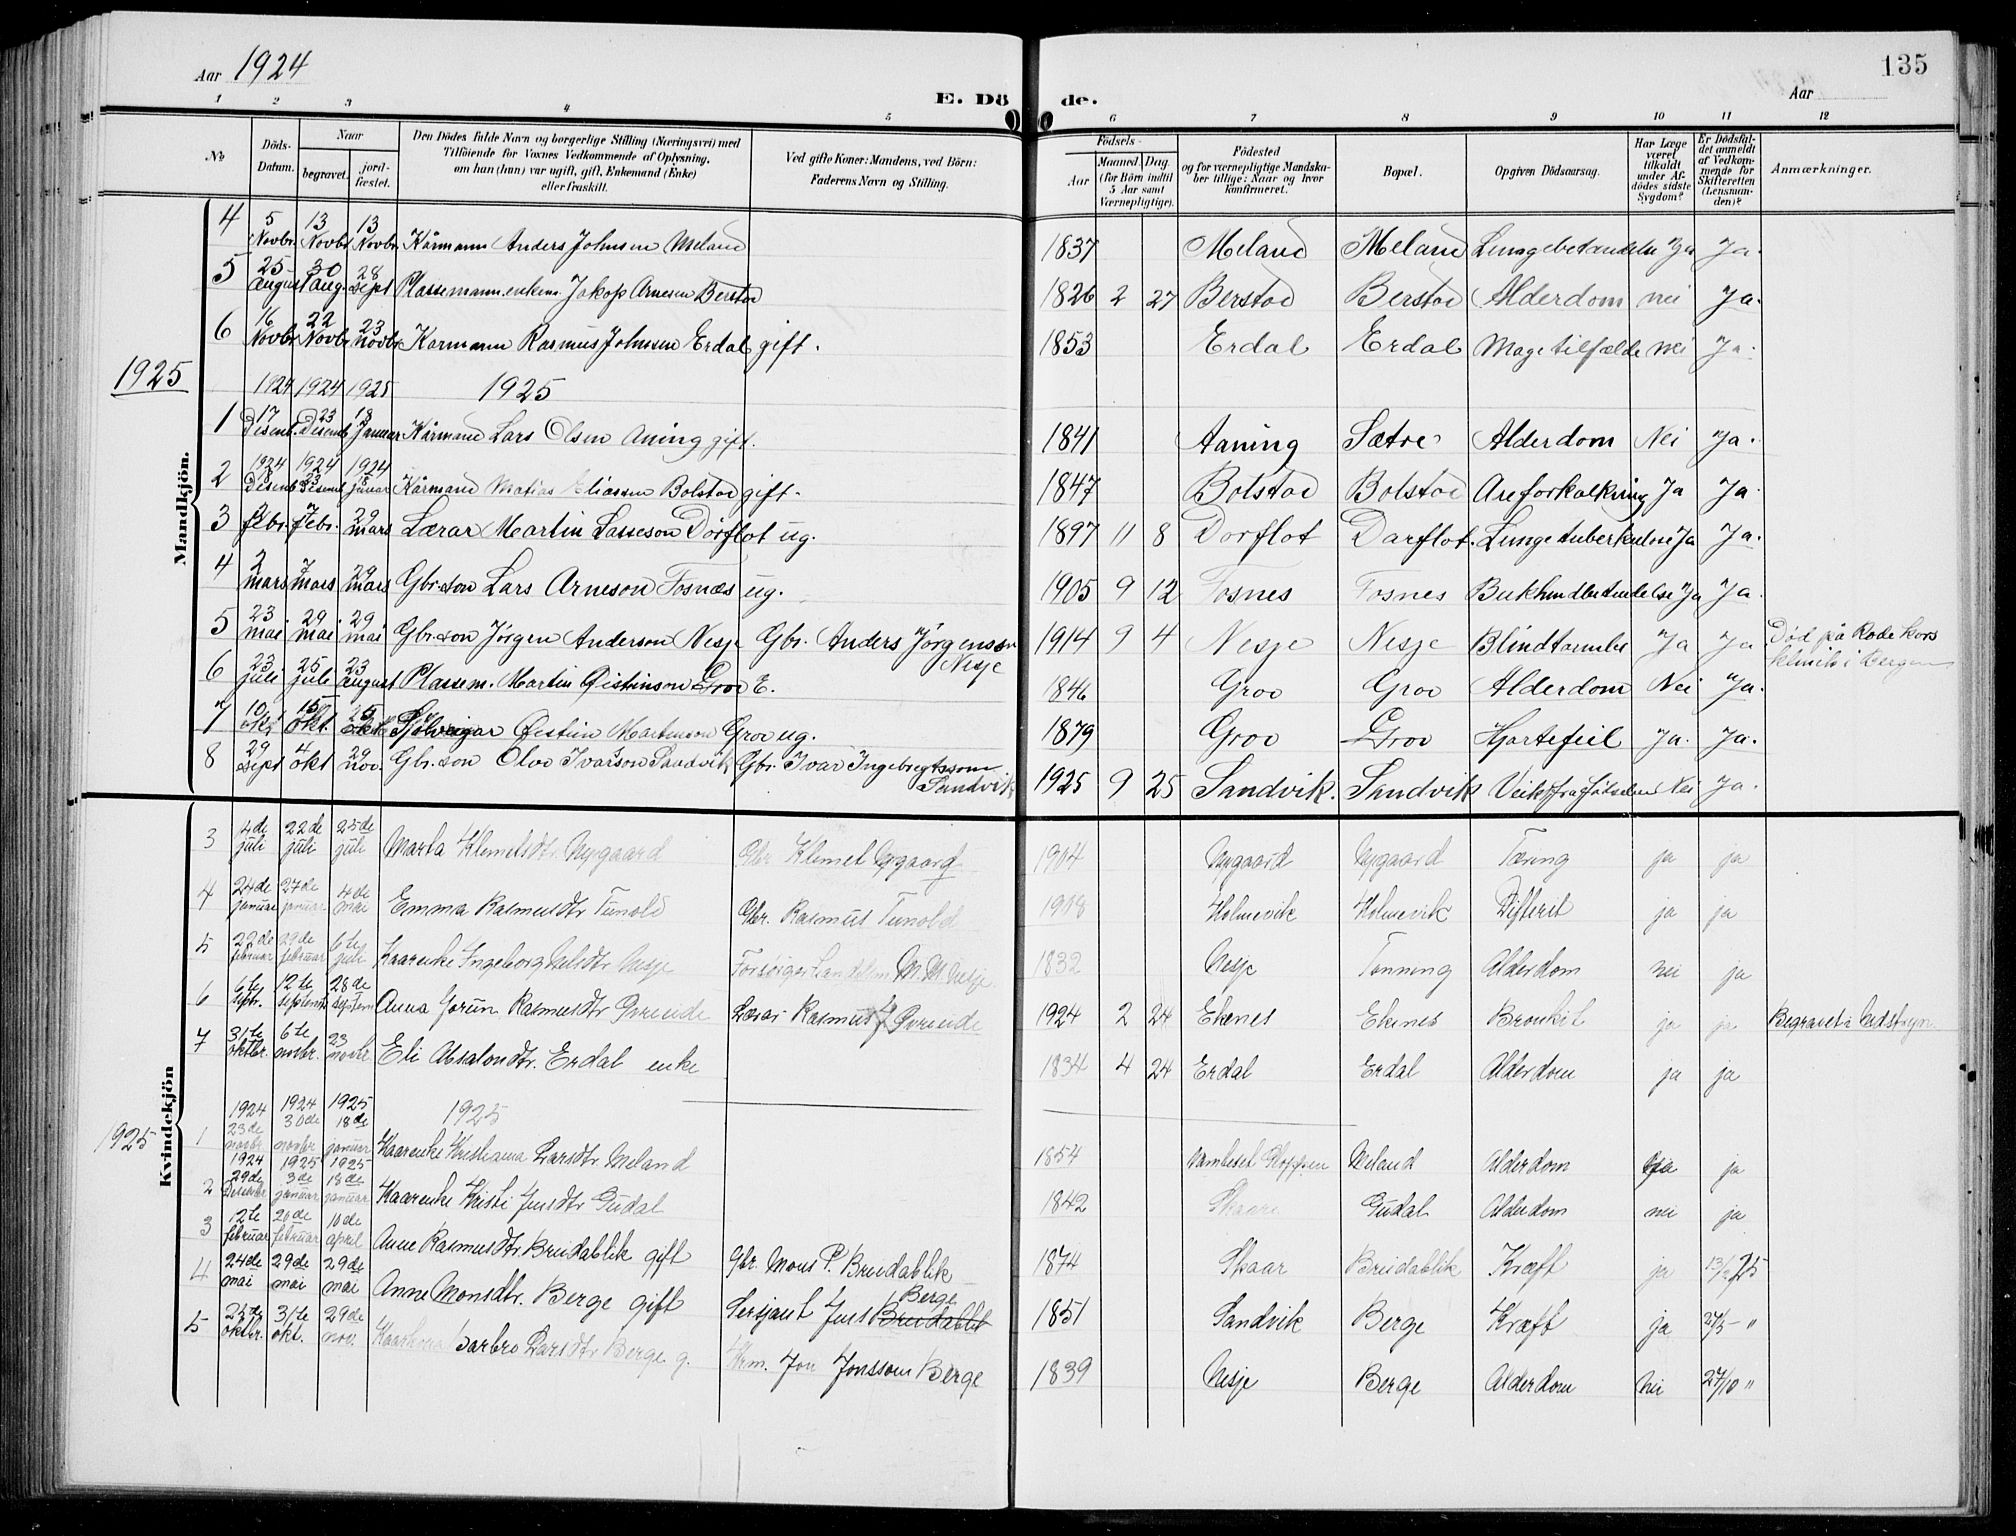 Aar 1924
135
Aar
E. Dö de.
1 2 3 4 5 6 7 8 9 10 11 12
№
Döds-Datum.
Naar
begravet.
jord-fæstet.
Den Dödes fulde Navn og borgerlige Stilling (Næringsvei) med
Tilföiende for Voxnes Vedkommende af Oplysning,
om han (hun) var ugift, gift, Enkemand (Enke)
eller fraskilt.
Ved gifte Koner: Mandens, ved Börn:
Faderens Navn og Stilling.
Födsels-
Aar
Maaned. Dag.
(for Börn indtil
5 Aar samt
Værnepligtige).
Födested
og for værnepligtige Mandska-
ber tillige: Naar og hvor
konfirmeret.
Bopæl.
Opgiven Dödsaarsag.
Har Læge
været
tilkaldt
under Af-
dödes sidste
Sygdom?
Er Dödsfal-
det anmeldt
af Vedkom-
mende for
Skifteretten
(Lensman-
den)?
Anmærkninger.
Mandkjön.
4 5 Novbr. 13 Novbr 13 Novbr. Kårmann Anders Johnsen Meland 1837 Meland Meland Lungebetendelse Ja Ja.
5 25 august 30 aug. 28 sept Plassemann enkem. Jakop Arnesen Berstad 1826 2 27 Berstad Berstad Alderdom nei Ja.
6 16 Novbr 22 Novbr 23 Novbr. Karmann Rasmus Johnsen Erdal gift. 1853 Erdal Erdal Magetilfælde nei Ja.
1925
1924 1924 1925 1925
1 17 Desemb. 23 Desemb 18 Januar Kårmand Lars Olsen Aning gift. 1841 Aaning Sætre Alderdom Nei Ja.
1924 1924 1924
2 Desemb 23 Desemb 18 januar Kårmand Matias Eliassen Bolstad gift. 1847 Bolstad Bolstad Areforkalkning Ja Ja.
3 febr. 7 febr. 29 mars Lærar Martin Lasseson Dørflot ug. 1897 11 8 Dørflot Darflot. Lungetuberkulose Ja Ja.
4 2 mars 7 mars 29 mars Gbr.son Lars Arneson Fosnæs ug. 1905 9 12 Fosnes Fosnes Bukhindbetendelse Ja Ja.
5 23 mai 29 mai 29 mai Gbr.son Jörgen Anderson Nesje Gbr. Anders Jörgensson Nesje 1914 9 4 Nesje Nesje Blindtarmbe Ja Ja Død på Røde Kors klinik i Bergen
6 23 juli 25 juli 23 august Plassem. Martin Øistinson Grov E. 1846 Grov Grov Alderdom Nei Ja.
7 10 okt 15 okt. 25 Øistin Martenson Grov ug. 1879 Grov Grov Hjartefeil Ja. Ja.
8 29 sept 4 okt 29 nov. Gbr.son Olav Ivarson Sandvik Gbr. Ivar Ingebrigtsson Sandvik 1925 9 25 Sandvik. Sandvik Veik fra fødselen Nei Ja.
Kvindekjön
3 4de juli 22de juli 25de juli Marta Klemetsdtr. Nygaard Gbr Klemet Nygaard 1904 Nygaard Nygaard Tæring ja ja
4 24de januar 27de januar 4de mai Emma Rasmusdtr Tunold Gbr. Rasmus Tunold 1918 Holmevik Holmevik Difterit ja ja
5 22de februar 29de februar 6te juli Kaarenke Ingeborg Nilsdtr Nesje Forsørger M. M. Nesje. 1832 Nesje Tenning Alderdom nei ja
6 6te septbr. 12te septemb 28de septem Anna Gorun Rasmusdtr Gvreide Lærar Rasmus J Gvreide 1924 2 24 Ekenes Ekenes Bronkit ja ja Begravet i
7 31te oktbr. 6te novbr. 23 novbr Eli Absalondtr. Erdal enke 1834 4 24 Erdal Erdal Alderdom ja ja
1924 1924 1925 1925
1925 1 23de novbr. 30de novbr 18de januar Kaarenke Kristianna Larsdtr Meland 1854 Vambeset Gloppen Meland Alderdom ja ja
1924 1925 1925
2 29de Desembr 3de januar 18de januar Kaarenke Kristi Jensdtr Gudal 1842 Skaare Gudal Alderdom nei ja
3 12te februar 20de februar 10de april Anne Rasmusdtr Breidablik gift Gbr. Mons P. Breidablik 1874 Skaar Breidablik Kræft ja 13/2 25
4 24de mai 29de mai 29de mai Anne Monsdtr. Berge gift Sersjant Jens Breidablik Berge 1851 Sandvik Berge Kræft ja 27/5 "
5 25de oktbr. 31te okt. 29de nov. Barbro Larsdtr Berge g. Krm. Jon Jonsson Berge 1839 Nesje Berge Alderdom nei 27/10 "